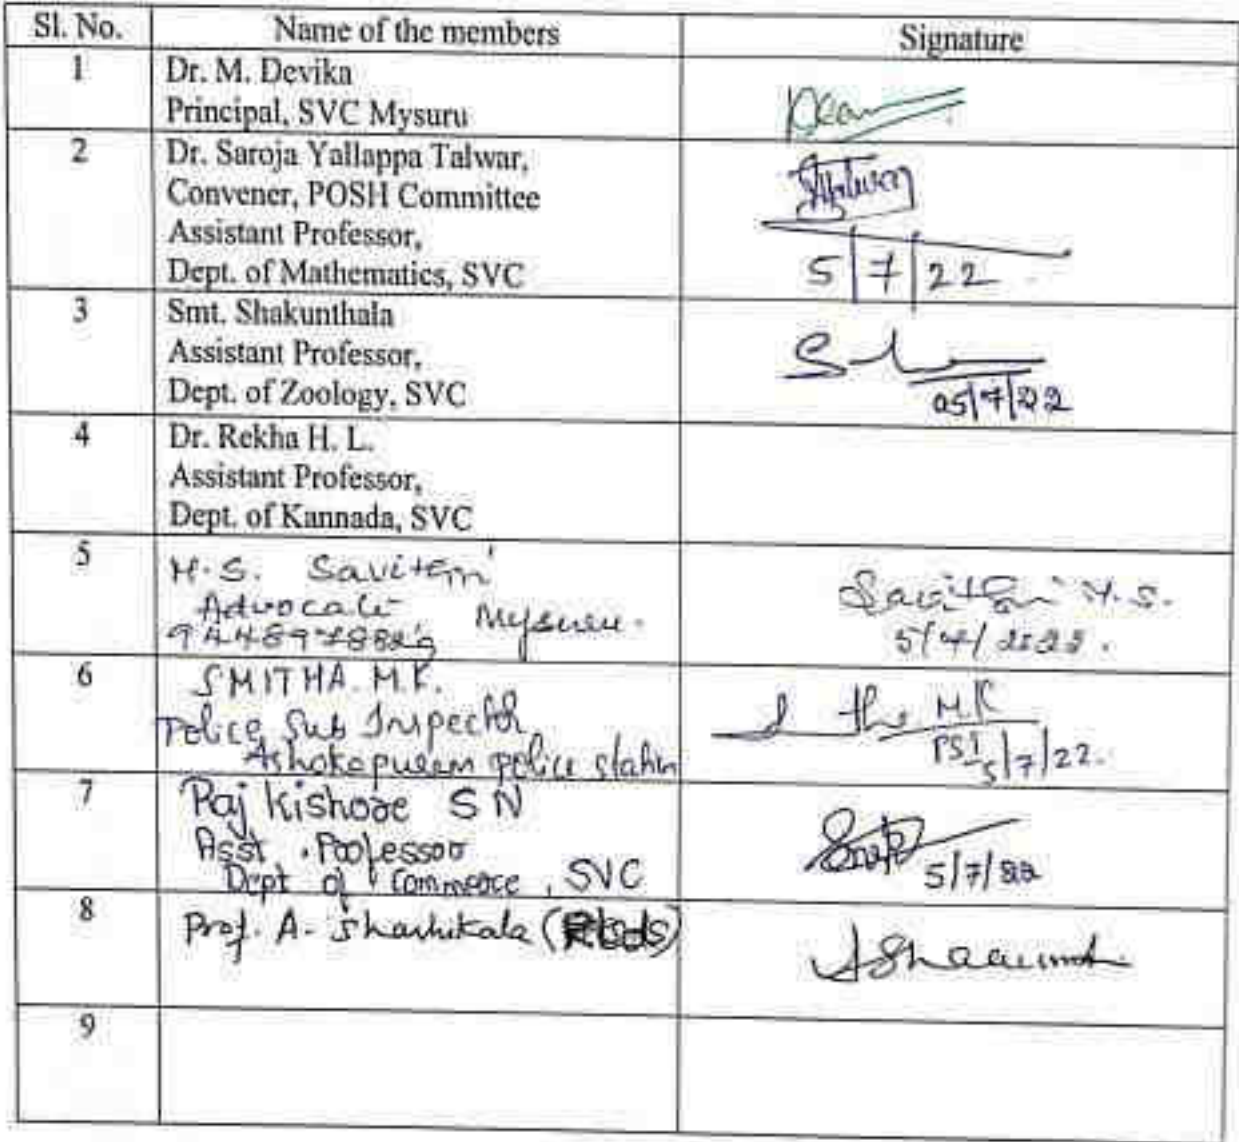 Sl. No. Name of the members Signature
1 Dr. M. Devika
Principal, SVC Mysuru
2 Dr. Saroja Yallappa Talwar,
Convener, POSH Committee
Assistant Professor,
Dept. of Mathematics, SVC
5/7/22
3 Smt. Shakunthala
Assistant Professor,
Dept. of Zoology, SVC
05/7/22
4 Dr. Rekha H. L.
Assistant Professor,
Dept. of Kannada, SVC
5 H.S. Savitri
Advocate Mysuru.
Savitri H.S.
5/7/2022.
6 SMITHA. M.K.
Police Sub Inspector
Ashokapuram police station
M.K
PSI
5/7/22.
7 Raj Kishore S N
Asst. Professor
Dept of Commerce, SVC
5/7/22
8 Prof. A. Shashikala
9